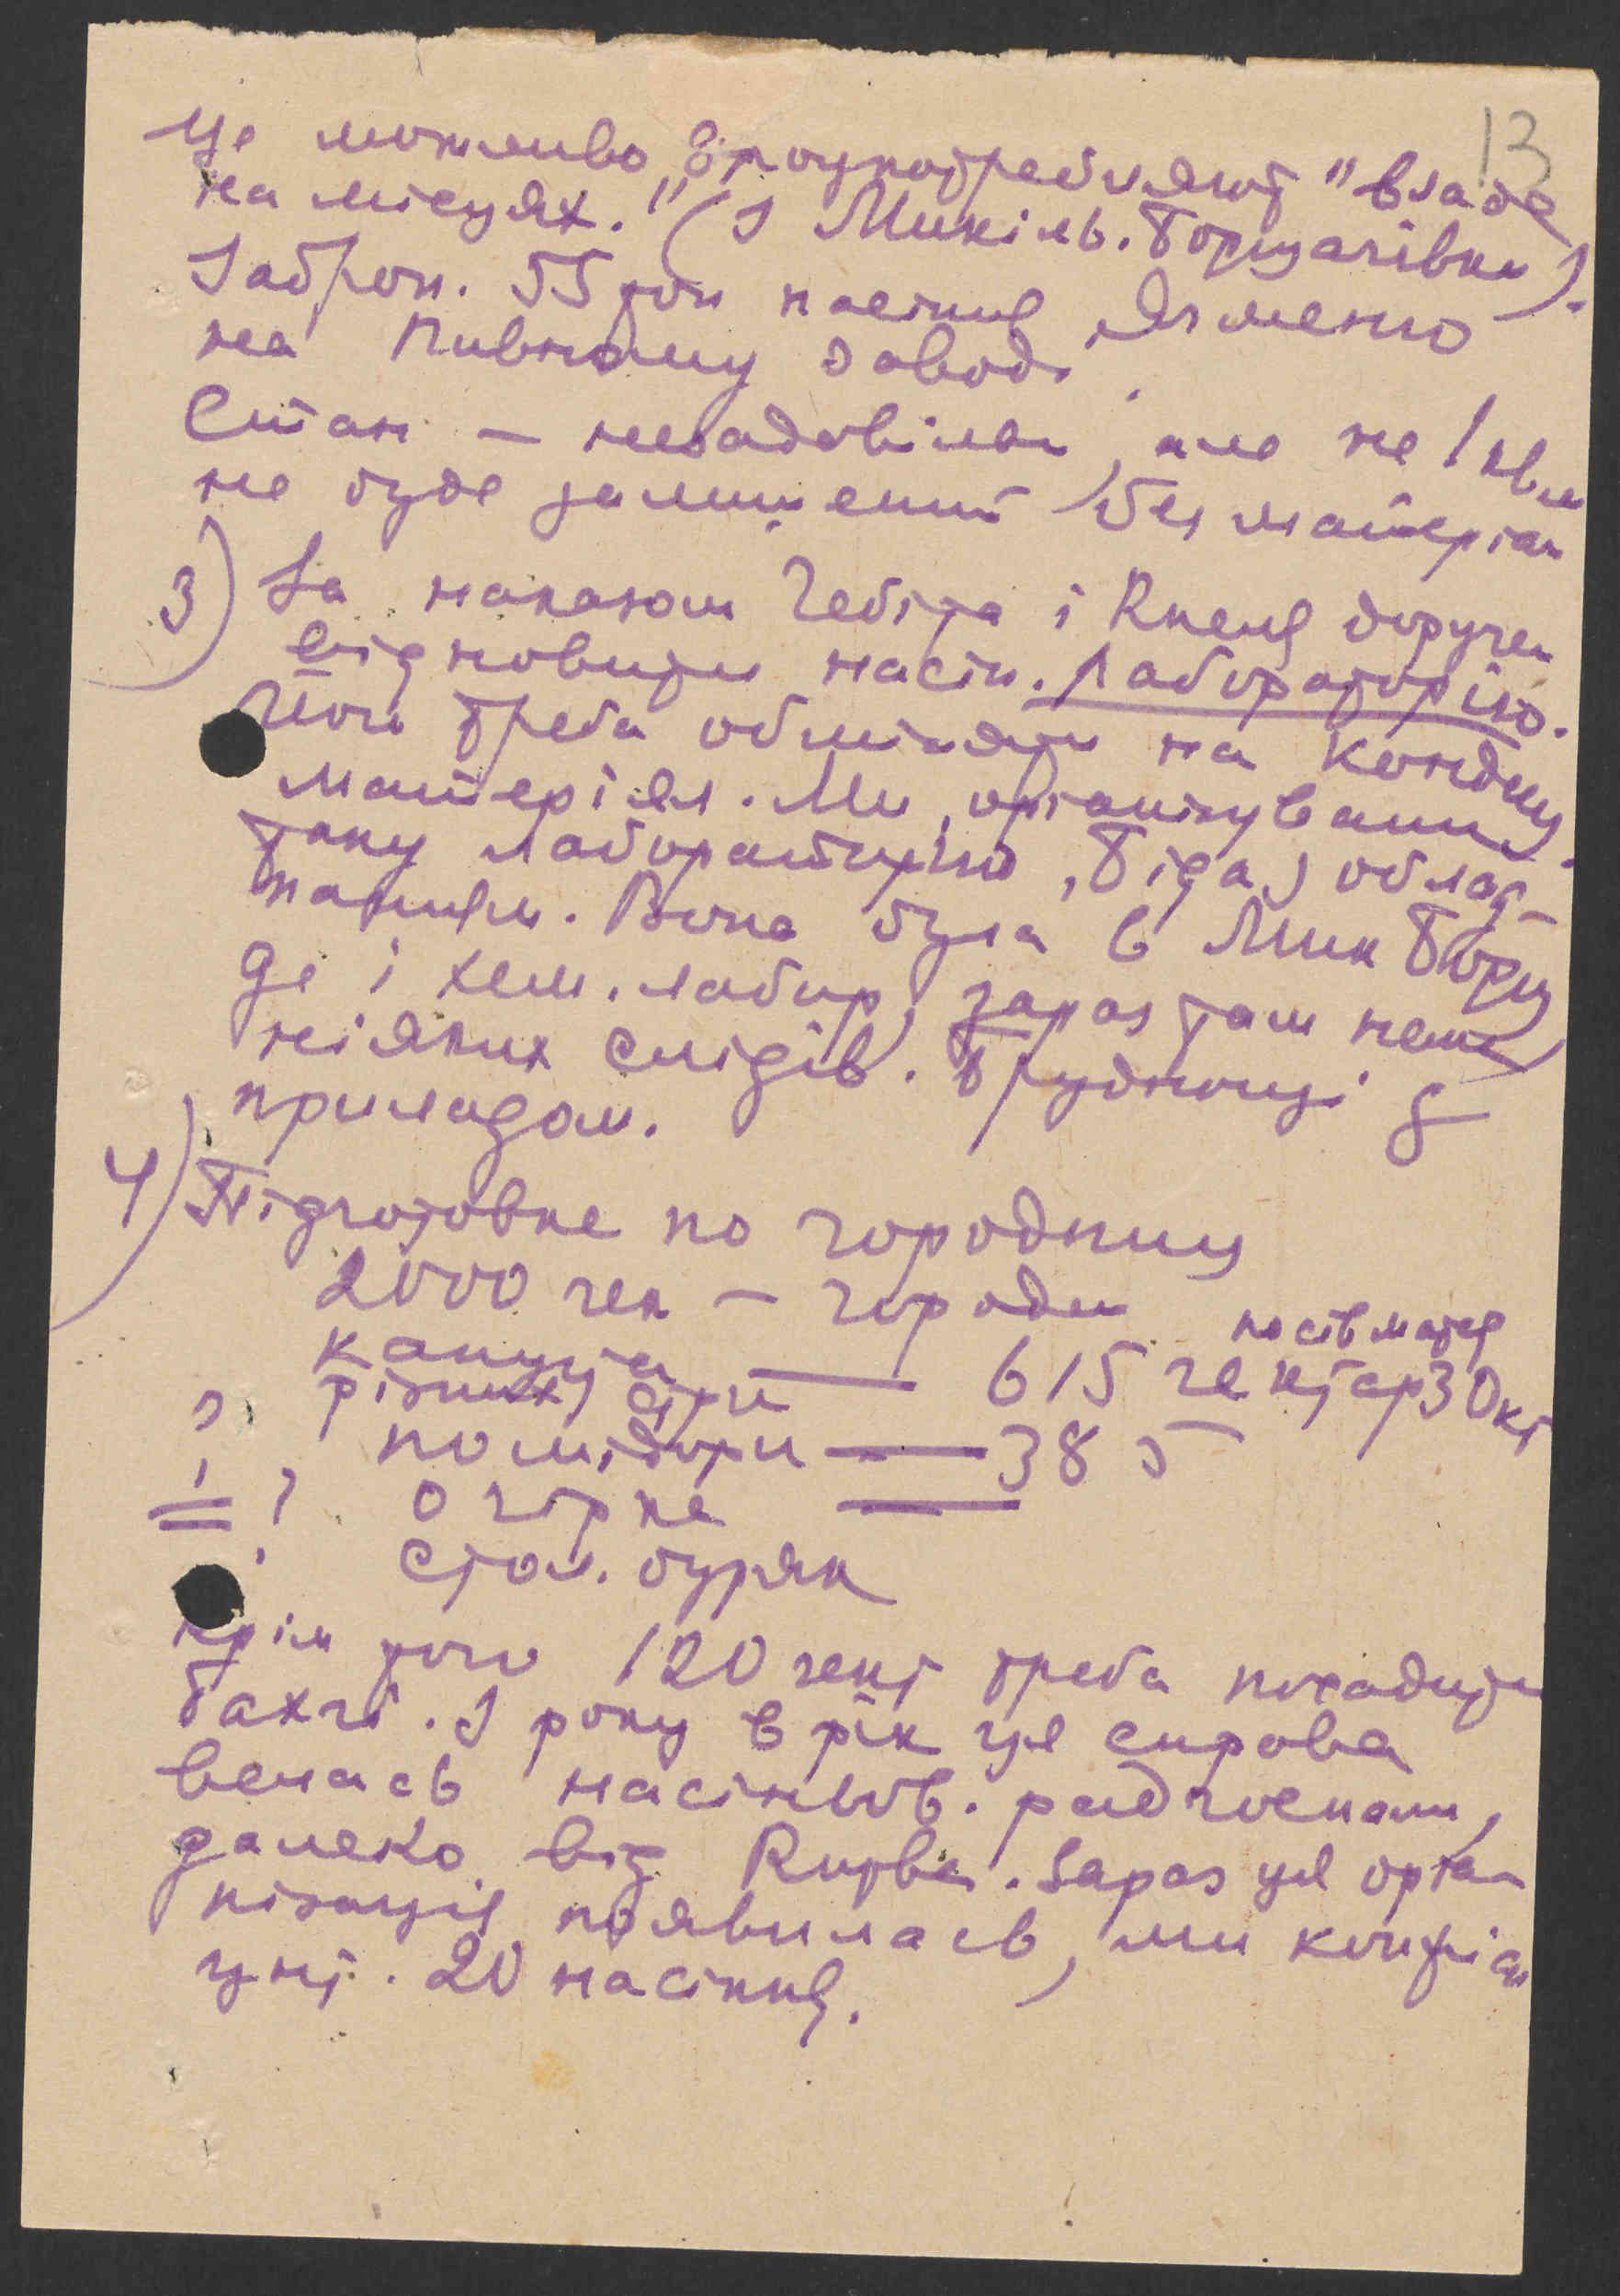 13
Це можливо "злоупотребляют" влада
на місцях." (З Микіль. Борщагівки).
Заброн. 55 тон насіння ячменю
на Пивному заводі.
Стан – незадовільн, але не 1 кв м
не буде залишений без матеріал
3) За наказом Гебіта і Кнене доручен
відновити насін. Лабораторію.
Його треба обміняти на кондиц.
матеріял. Ми організували
таку лабораторію, біда з облад-
нанням. Вона була в Мик Борщ
де і хем. лабор, зараз там нема
ніяких слідів. Труднощі з
приладом.
4) Підготовка по городниц
2000 гек – городи
посівматер
капуста — 615 гектар 30 кг
різних сорти
помідори — 385
огірки —
стол. буряк
крім того 120 гект треба посадити
бахчі. З року в рік ця справа
велась насіньов. радгоспами,
далеко від Києва. Зараз ця орга-
нізація появилась, ми
20 насіння.